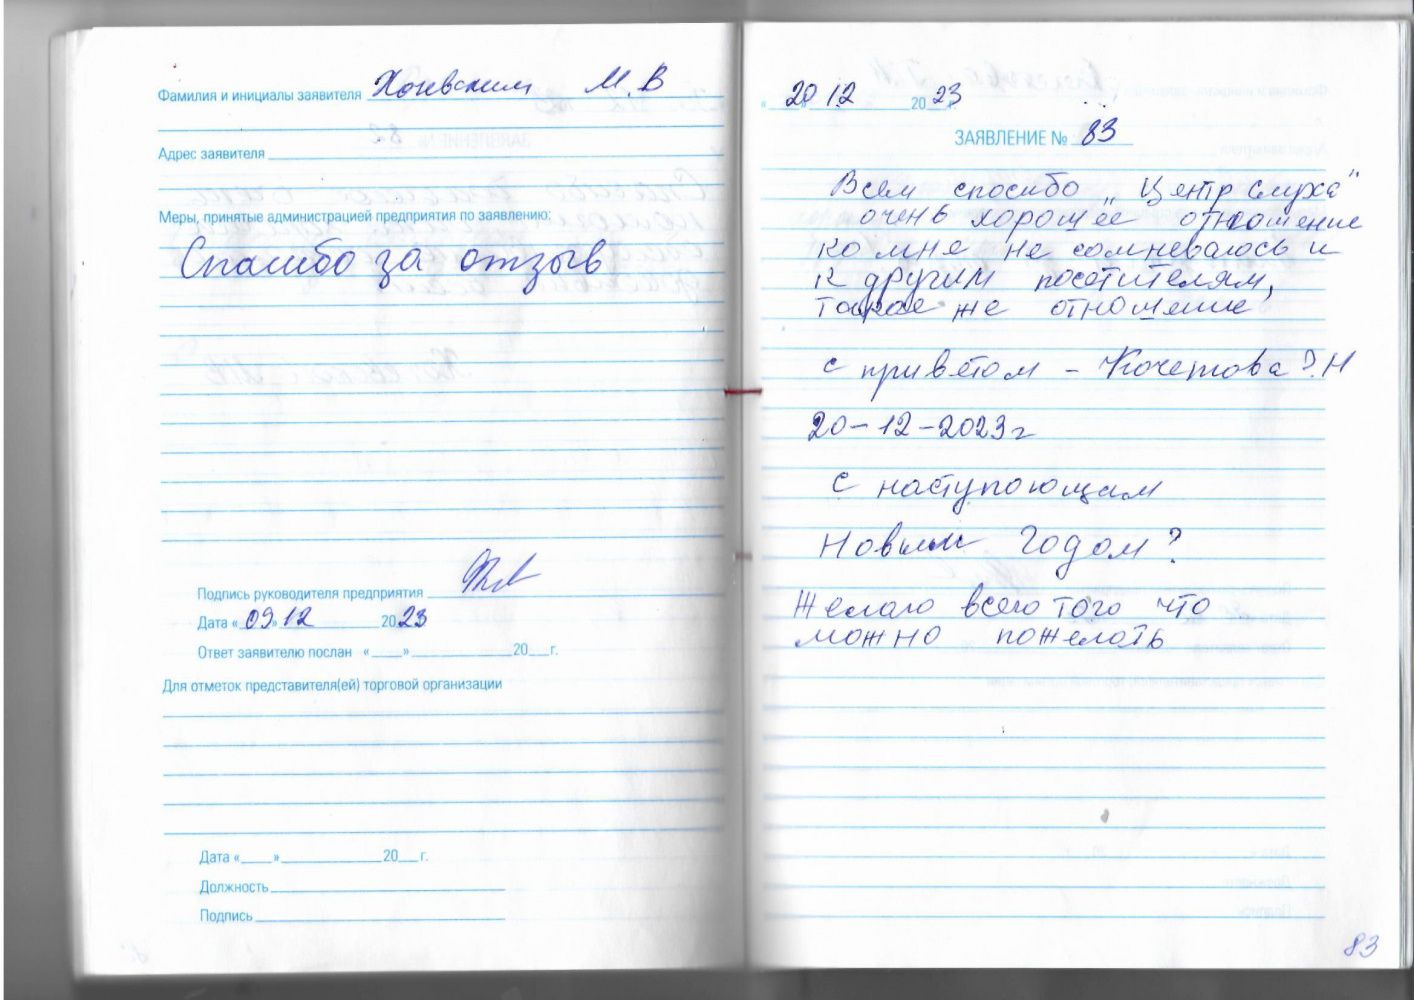 Фамилия и инициалы заявителя М.В
Адрес заявителя
Меры, принятые администрацией предприятия по заявлению:
Спасибо за отзыв
Подпись руководителя предприятия
Дата «09» 12 2023
Ответ заявителю послан «__» 20__г.
Для отметок представителя(ей) торговой организации
Дата «__» 20__г.
Должность
Подпись
«20» 12 2023
ЗАЯВЛЕНИЕ № 83
Всем спосибо „Центр слуха"
очень хорощее отношение
ко мне не сомневаюсь и
к другим посетителям,
такое же отношение
с приветом – Кочетова Г.Н
20-12-2023г
С наступоющам
Новым Годом?
Желаю всего того что
можно пожелать
83